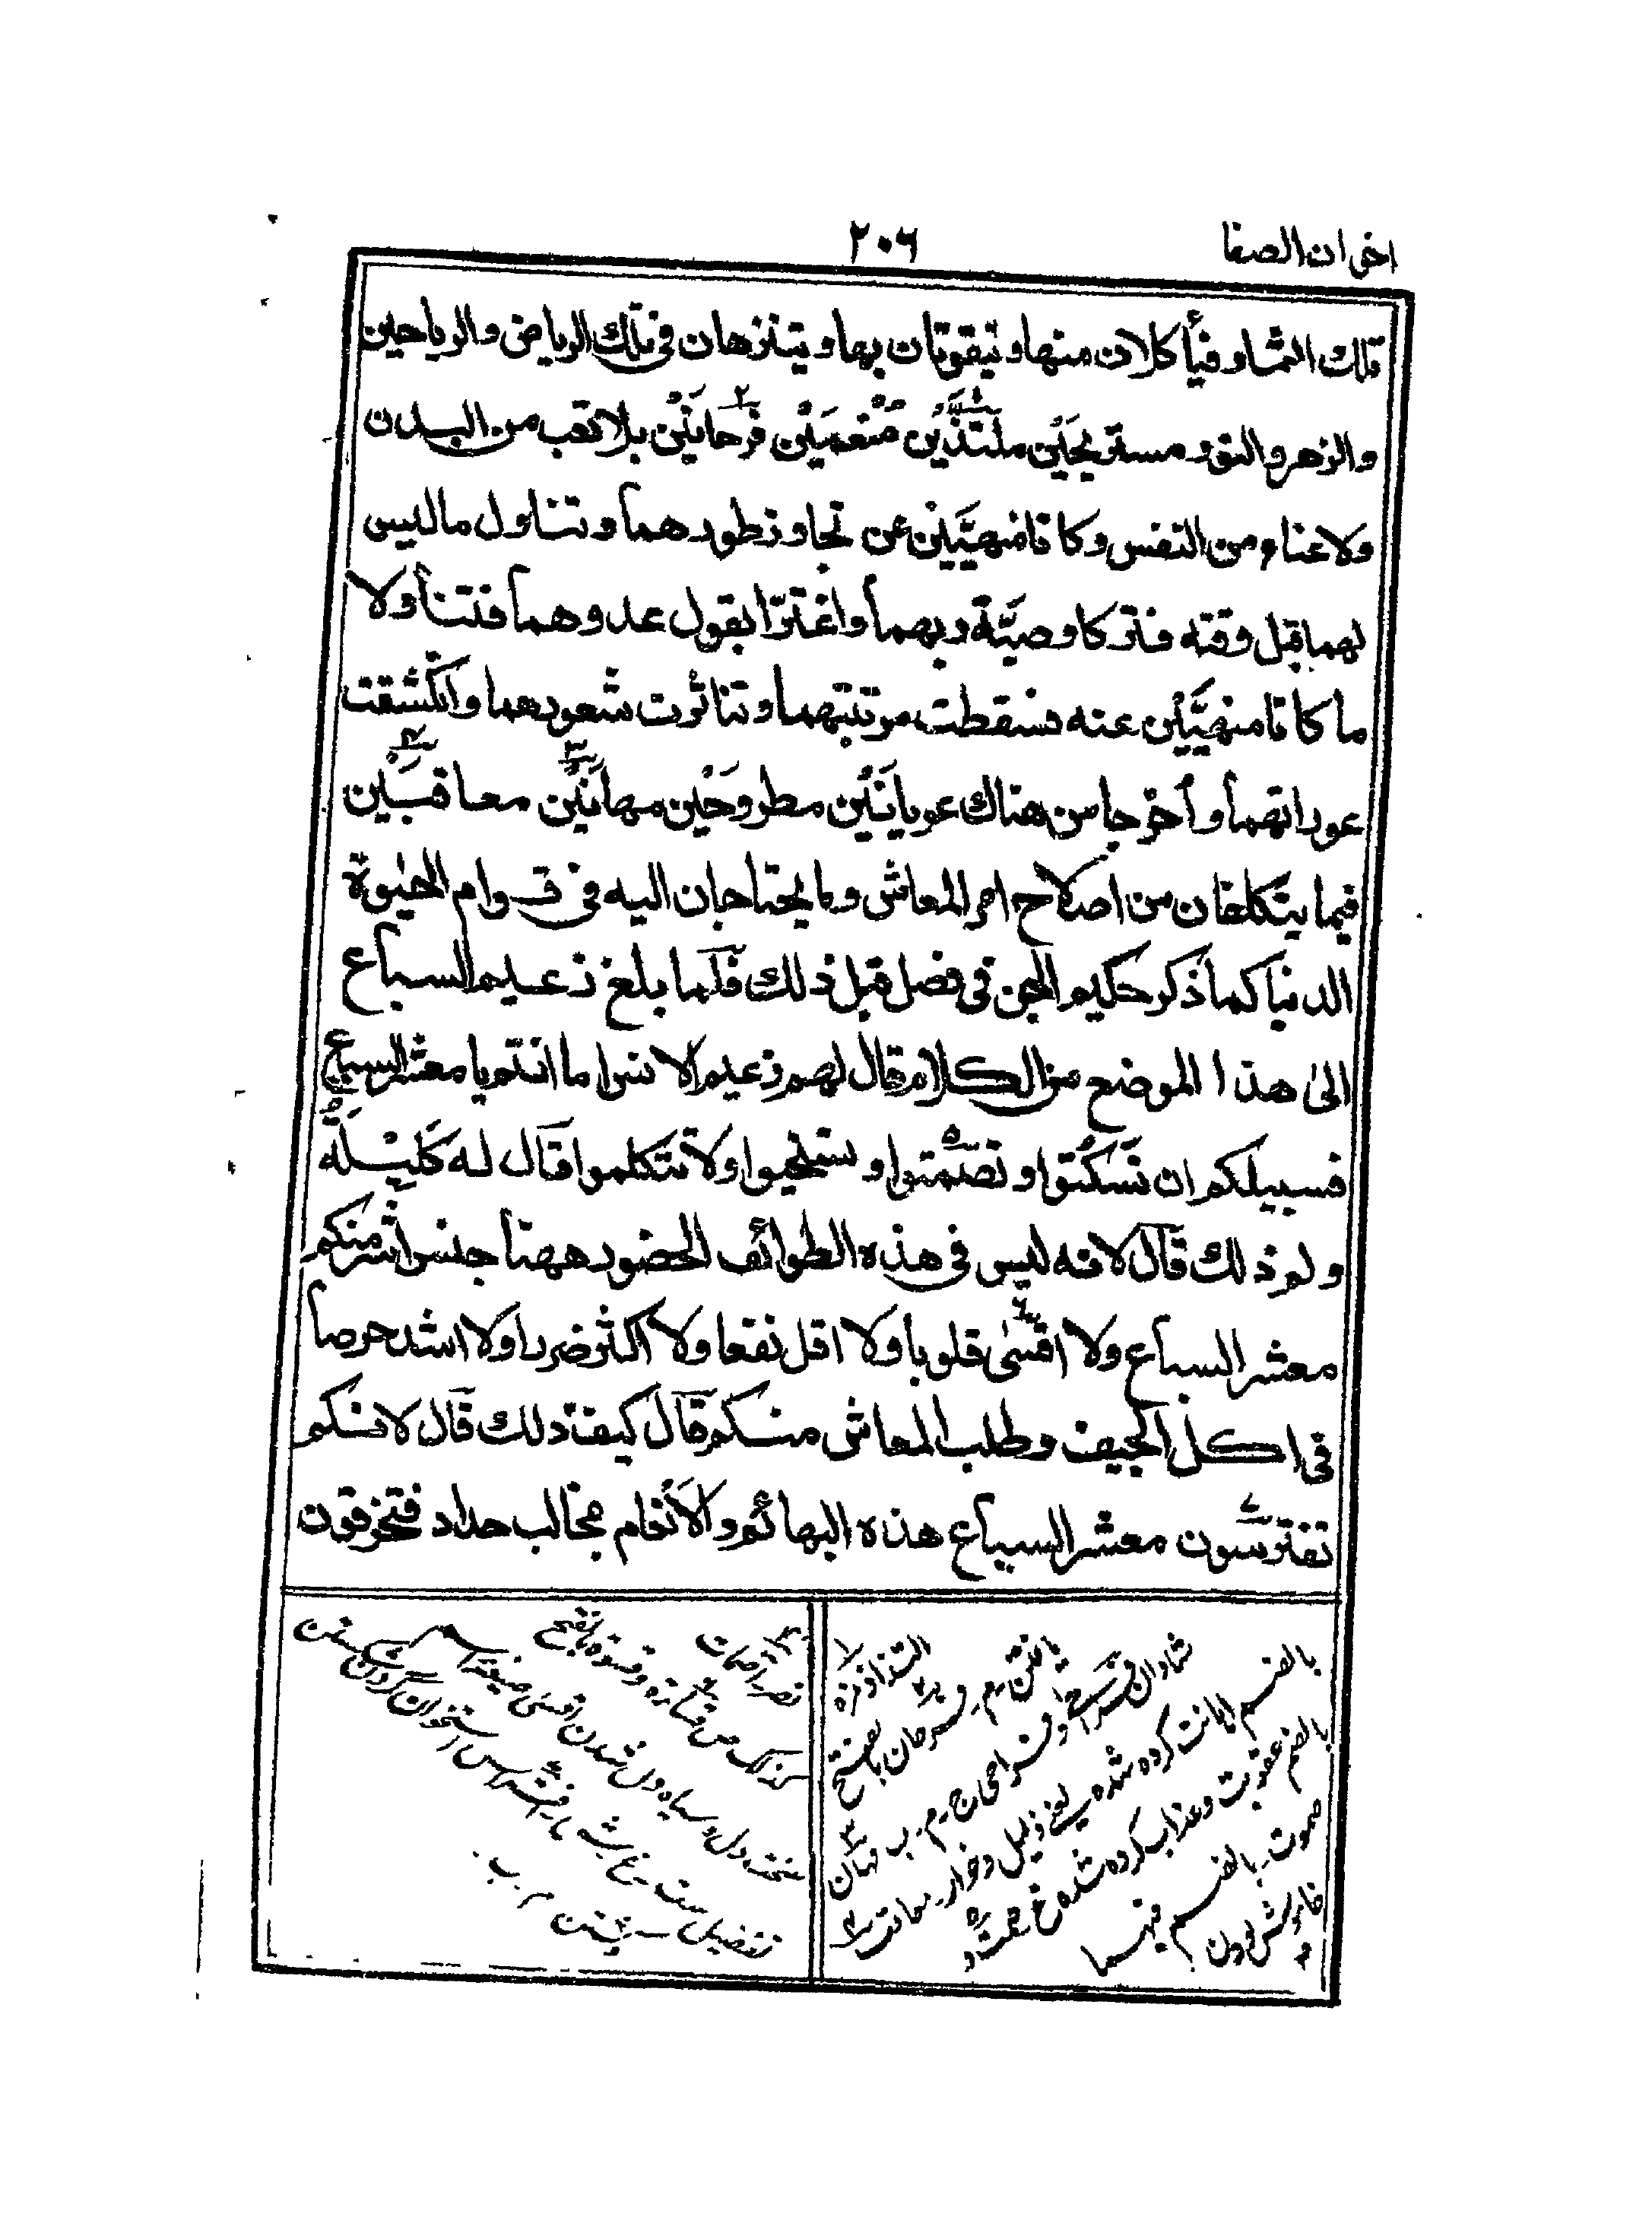 اخوان الصفا
٢٠٦
تلك الثمار فيأكلان منها ويتقوتان بها ويتنزهان فى تلك الرياض والرياحين
والزهر والنور مستريحَيْن ملتذَّيْن متنعمَيْن فرحانَيْن بلا تعب من البدن
ولا عناء من النفس وكانا منهيَّيْن عن تجاوز طورهما وتناول ما ليس
لهما قبل وقته فتركا وصيَّة ربهما واغترّا بقول عدوهما فتناولا
ما كانا منهيَّيْن عنه فسقطت مرتبتهما وتناثرت شعورهما وانكشفت
عوراتهما وأخرجا من هناك عريانَيْن مطروحَيْن مهانَيْن معاقبَيْن
فيما يتكلفان من اصلاح امر المعاش وما يحتاجان اليه فى قوام الحيٰوة
الدنيا كما ذكر حكيم الجن فى فصل قبل ذلك فلما بلغ زعيم السباع
الىٰ هذا الموضع من الكلام قال لهم زعيم الانس اما انتم يا معشر السباع
فسبيلكم ان تسكتوا وتصمتوا وستحيوا ولا تتكلموا قال له كَلِيْلَه
ولم ذلك قال لانه ليس فى هذه الطوائف الحضور ههنا جنس اشر منكم
معشر السباع ولا اقسٰى قلوبا ولا اقل نفعا ولا اكثر ضررا ولا اشد حرصا
فى اكل الجيف وطلب المعاش منكم قال كيف ذلك قال لانكم
تفترسون معشر السباع هذه البهائم والأنعام بمخالب حداد فتخرقون
التذاذ مزه
يافتن م
فرحان بالفتح
شادان
مهان
بالضم اهانت كرده شده يعنى ذليل وخوار
معاقب
بالضم عقوبت وعذاب كرده شده
صموت بالضم
خاموش بودن
سخت دل وسياه دل شدن اقسى صيغه اسم
تفضيل ست
گردن شكستن
م ب